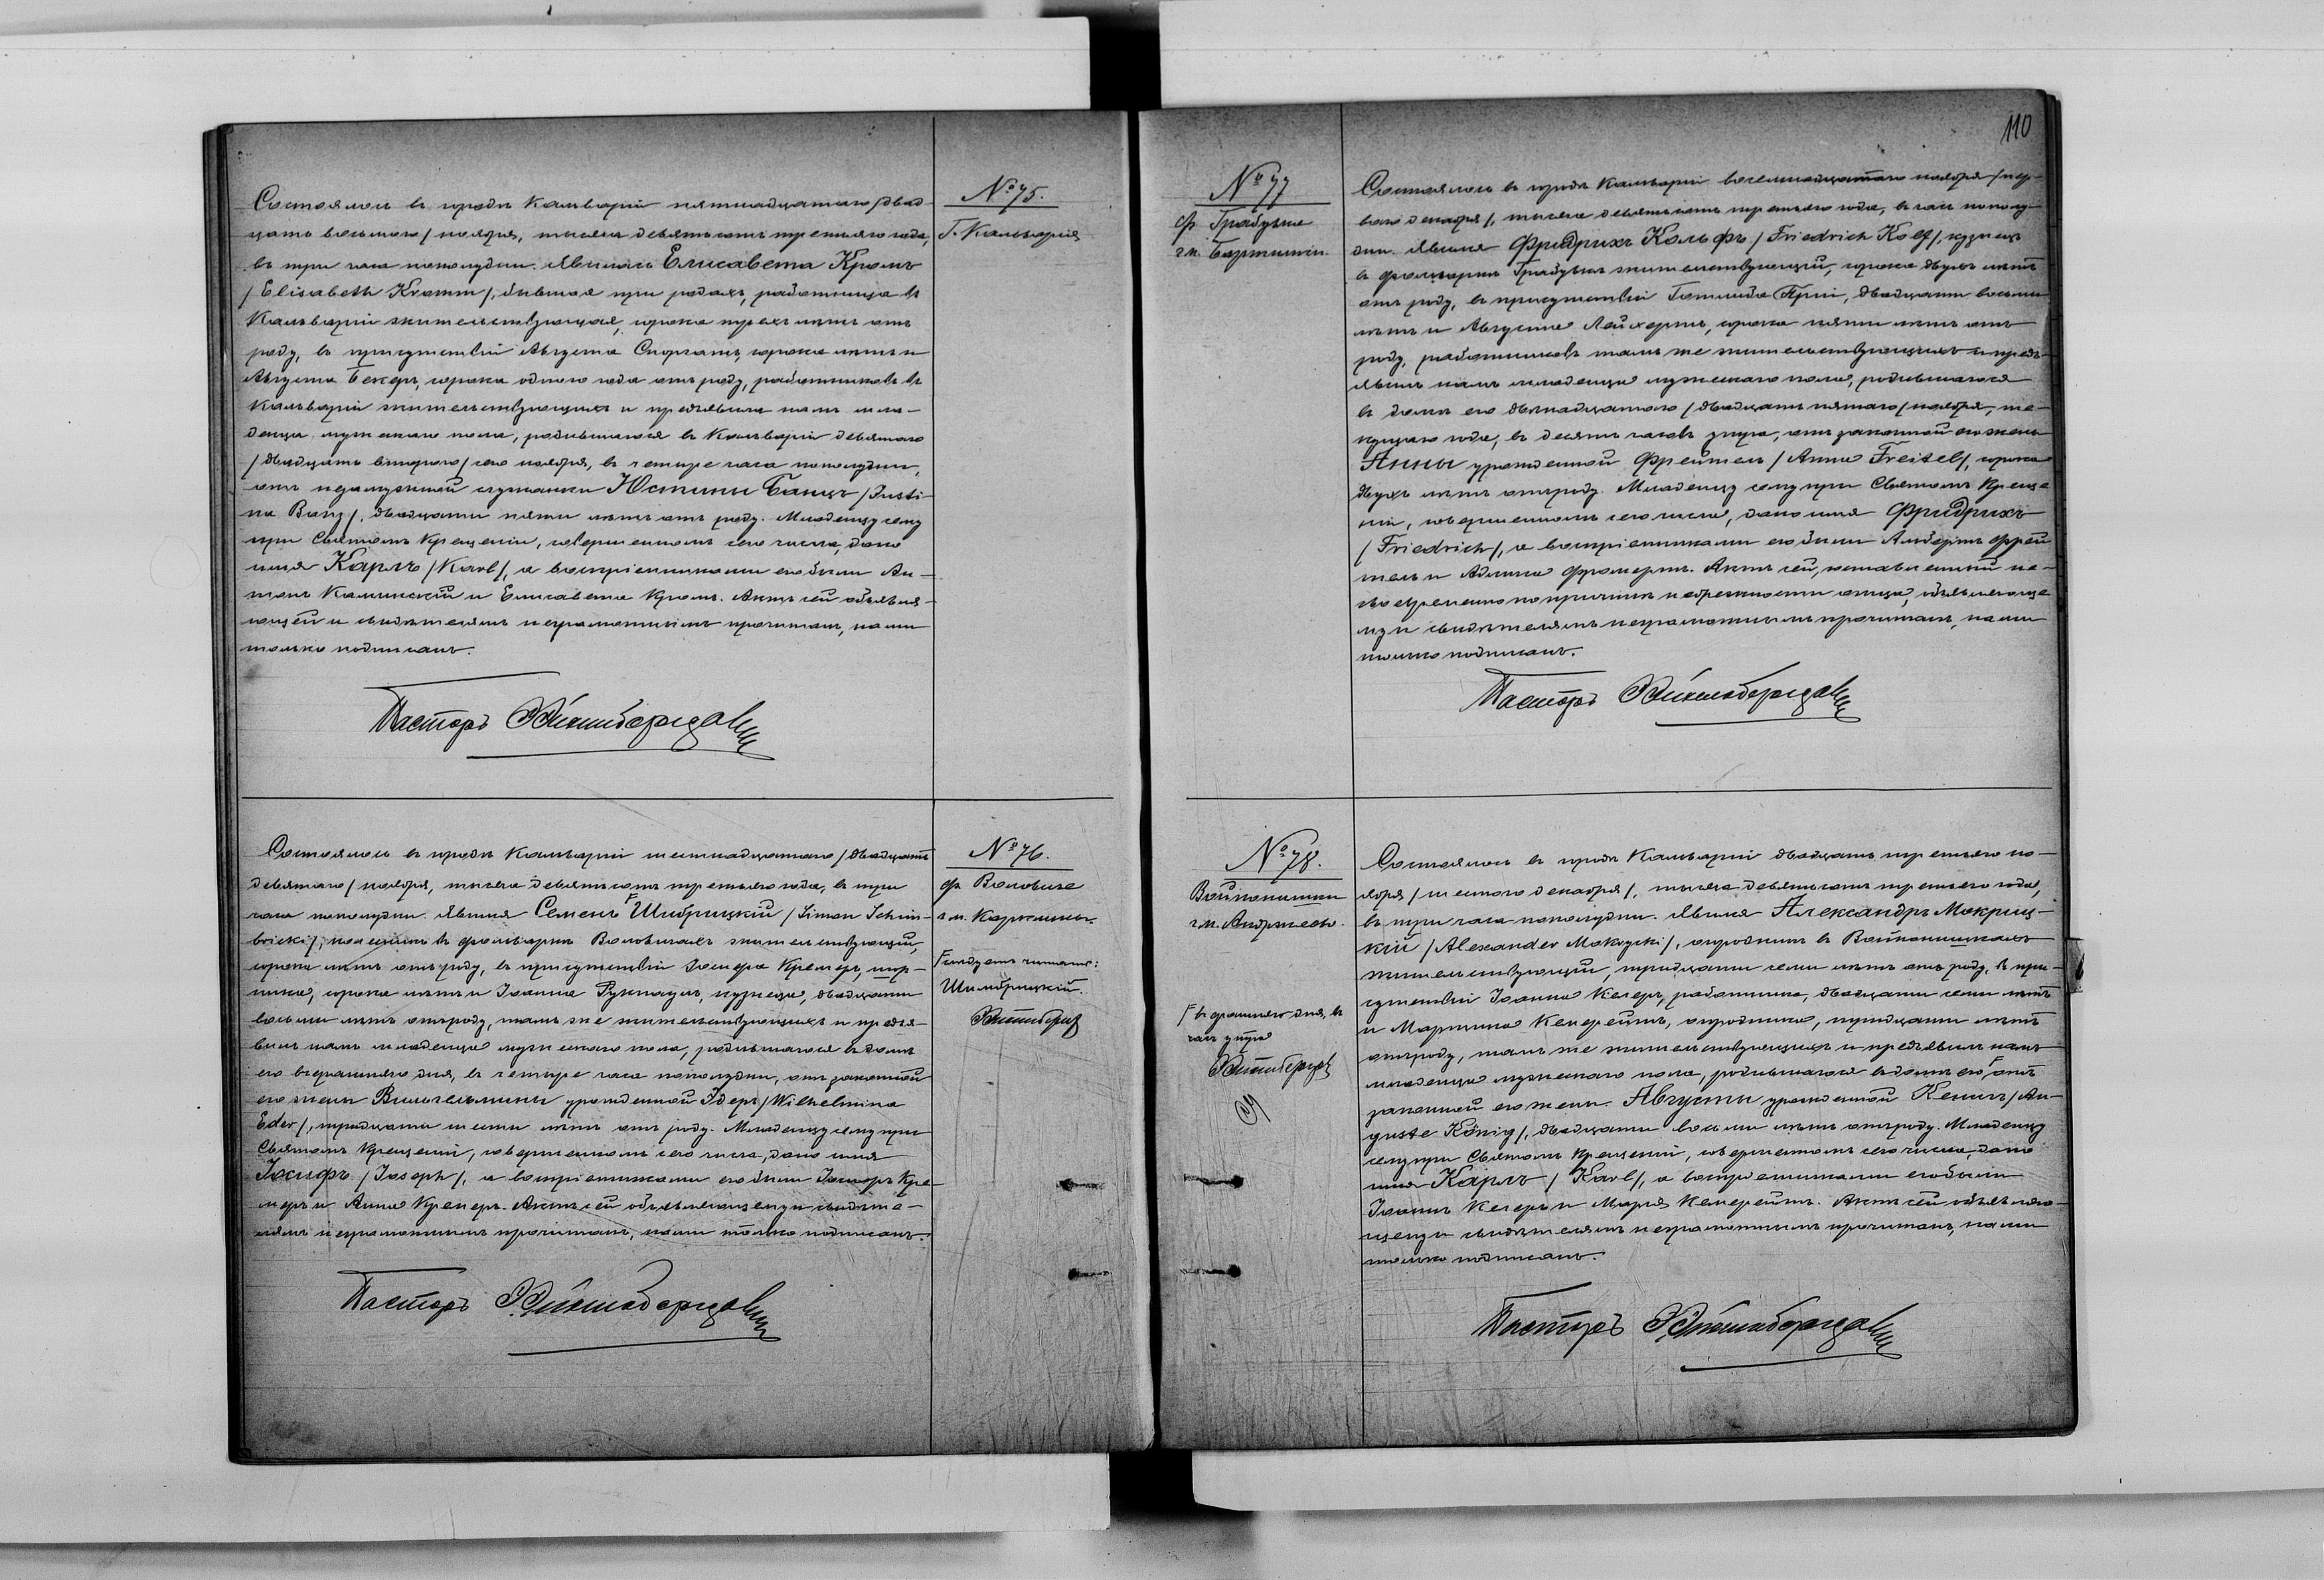 № 75.
Г. Кальварія
Состоялось въ городѣ Кальваріи пятнадцатаго /двад-
цать восьмого/ ноября, тысяча девятьсотъ третьяго года,
въ три часа пополудни. Явилась Елисавета Крамъ
/Elisabeth Kramm/, бывшая при родахъ, работница въ
Кальваріи жительствующая, сорока трехъ лѣтъ отъ
роду, въ присутствіи Августа сорока лѣтъ и
Августа Бекеръ, сорока одного года отъ роду, работниковъ въ
Кальваріи жительствующихъ и предъявила намъ мла-
денца мужескаго пола, родившагося въ Кальваріи девятаго
/двадцать второго/ сего ноября, въ четыре часа пополудни,
отъ незамужной служанки Юстины Банцъ /Justi-
na Banz/, двадцати пяти лѣтъ отъ роду. Младенцу сему
при Святомъ Крещеніи, совершенномъ сего числа, дано
имя Карлъ /Karl/, а воспріемниками его были Ан-
тонъ Калинскій и Елисавета Крамъ. Актъ сей объявля-
ющей и свидѣтелямъ неграмотнымъ прочитанъ, нами
только подписанъ.
Пасторъ
№ 76.
ф. Воловиче
г.м.
F слѣдуетъ читать:
Шимбрицкій.
Состоялось въ городѣ Кальваріи шестнадцатаго /двадцать
девятаго/ ноября, тысяча девятьсотъ третьяго года, въ три
часа пополудни. Явился Семенъ F Шибрицкій /Simon Schim-
bricki/, въ фольваркѣ Воловичахъ жительствующій,
сорока лѣтъ отъ роду, въ присутствіи Іосифа Кремеръ,
сорока лѣтъ и Іоанна кузнеца, двадцати
восьми лѣтъ отъ роду, тамъ же жительствующихъ и предъя-
вилъ намъ младенца мужескаго пола, родившагося въ домѣ
его вчерашняго дня, въ четыре часа пополудни, отъ законной
его жены Вильгельмины урожденной Эдеръ /Wilhelmina
Eder/, тридцати шести лѣтъ отъ роду. Младенцу сему при
Святомъ Крещеніи, совершенномъ сего числа, дано имя
Іосифъ /Joseph/, а воспріемниками его были Іосифъ Кре-
меръ и Анна Кремеръ. Актъ сей объявляющему и свидѣте-
лямъ неграмотнымъ прочитанъ, нами только подписанъ.
Пасторъ
110
№ 77
ф. Грабувка
г.м.
Состоялось въ городѣ Кальваріи восемнадцатаго ноября /пер-
ваго декабря/, тысяча девятьсотъ третьяго года, въ часъ пополу-
дни. Явился Фридрихъ Кольфъ /Friedrich Kolf/, кузнецъ
въ фольваркѣ Грабувкѣ жительствующій, сорока двухъ лѣтъ
отъ роду, въ присутствіи Готлиба двадцати восьми
лѣтъ и Августа сорока пяти лѣтъ отъ
роду, работниковъ тамъ же жительствующихъ и предъ-
явилъ намъ младенца мужескаго пола, родившагося
въ домѣ его двѣнадцатаго /двадцать пятаго/ ноября, те-
кущаго года, въ десять часовъ утра, отъ законной его жены
Анны урожденной Фрейтель /Anna Freitel/, сорока
двухъ лѣтъ отъ роду. Младенцу сему при Святомъ Креще-
ніи, совершенномъ сего числа, дано имя Фридрихъ
/Friedrich/, а воспріемниками его были Альбертъ Фрей-
тель и Фромертъ. Актъ сей, составленный не-
своевременно по причинѣ небрежности отца, объявляюще-
му и свидѣтелямъ неграмотнымъ прочитанъ, нами
только подписанъ.
Пасторъ
№ 78.
г.м.
F вчерашняго дня, въ
часъ утра
Состоялось въ городѣ Кальваріи двадцать третьяго но-
ября /шестого декабря/, тысяча девятьсотъ третьяго года,
въ три часа пополудни. Явился Александръ Мокриц-
кій /Alexander Mokrycki/, огродникъ въ
жительствующій, тридцати семи лѣтъ отъ роду, въ при-
сутствіи Іоанна Келеръ, работника, двадцати семи лѣтъ
и Мартина огродника, тридцати лѣтъ
отъ роду, тамъ же жительствующихъ и предъявилъ намъ
младенца мужескаго пола, родившагося въ домѣ его, F отъ
законной его жены Августы урожденной Кенигъ /Au-
guste König/, двадцати восьми лѣтъ отъ роду. Младенцу
сему при Святомъ Крещеніи, совершенномъ сего числа, дано
имя Карлъ /Karl/, а воспріемниками его были
Іоаннъ Келеръ и Марія Актъ сей объявляю-
щему и свидѣтелямъ неграмотнымъ прочитанъ, нами
только подписанъ.
Пасторъ